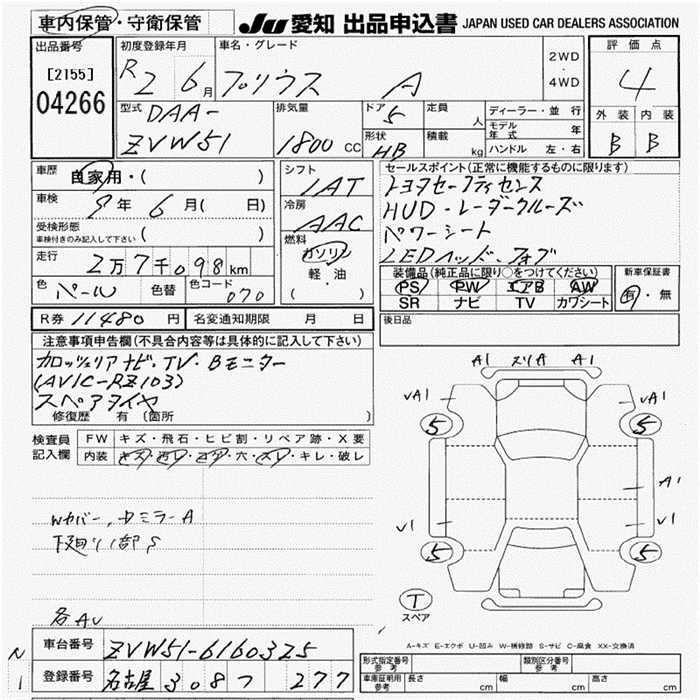 車内保管・守衛保管
JU 愛知 出品申込書 JAPAN USED CAR DEALERS ASSOCIATION
出品番号
[2155]
04266
初度登録年月
R2 6月
車名・グレード
プリウス A
2WD
・
4WD
評価点
4
外装 内装
B B
型式
DAA-
ZVW51
排気量
1800 CC
ドア
5
形状
HB
定員
人
積載
kg
ディーラー・並行
モデル年式 年
ハンドル 左・右
車歴
自家用・( )
車検
9年 6月( 日)
受検形態
車検付きのみ記入して下さい ( )
走行
2万7千098km
色
パール
色替
色コード
070
シフト
IAT
冷房
AAC
燃料
ガソリン
軽・油
( )
セールスポイント(正常に機能するものに限ります)
トヨタセーフティセンス
HUD・レーダークルーズ
パワーシート
LEDヘッド・フォグ
装備品(純正品に限り○をつけてください)
PS PW エアB AW
SR ナビ TV カワシート
新車保証書
有・無
R券 11480 円
名変通知期限 月 日
後日品
注意事項申告欄(不具合内容等は具体的に記入して下さい)
カロッツェリアナビ・TV・Bモニター
(AVIC-RZ103)
スペアタイヤ
修復歴 有 (箇所 )
検査員記入欄
FW キズ・飛石・ヒビ割・リペア跡・X要
内装 キズ・汚レ・コゲ・穴・スレ・キレ・破レ
Wカバー、ドミラーA
下廻り1部S
各AU
A1 スリA A1
VA1 VA1
5 5
A1
V1 V1
5 5
T
スペア
A-キズ E-エクボ U-凹み W-補修跡 S-サビ C-腐食 XX-交換済
N
1
車台番号 ZVW51-6160325
登録番号 名古屋 308 フ 277
形式指定番号 参考
類別区分番号 参考
車庫証明用 参考 長さ cm 幅 cm 高さ cm